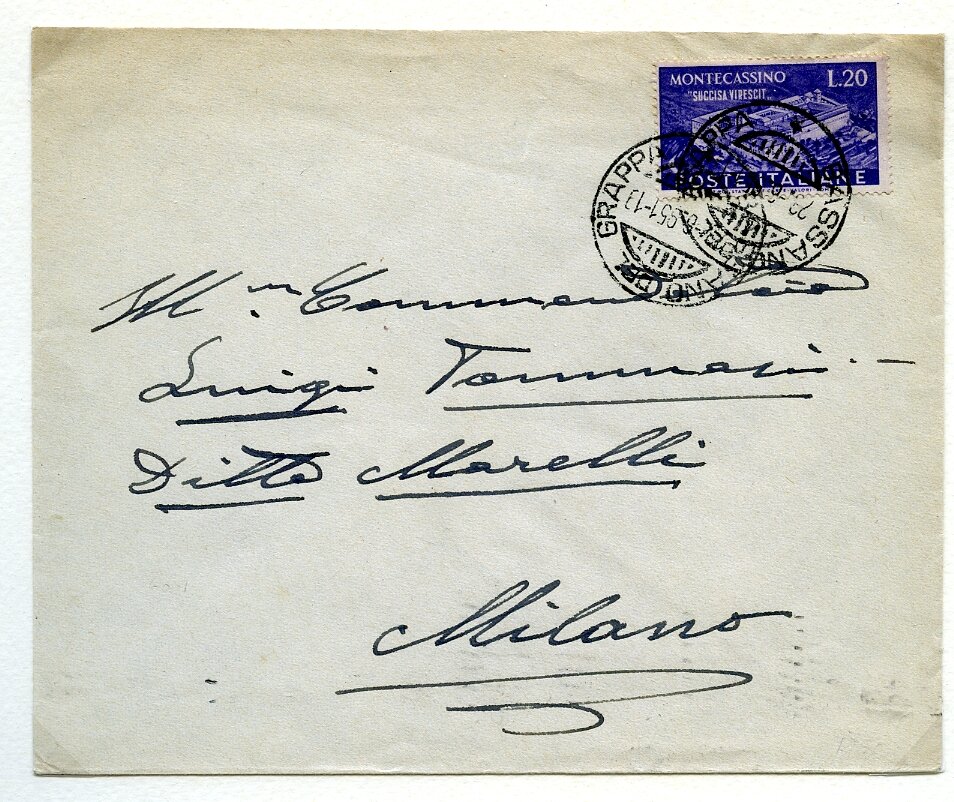 MONTECASSINO L.20
"SUCCISA VIRESCIT"
POSTE ITALIANE
BASSANO GRAPPA
GRAPPA
Ill.mo Commendatore
Luigi Tommasi
Ditta Marelli
Milano